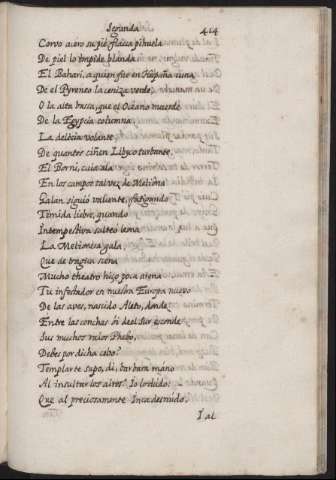 Segunda 414
Corvo acero su pie: flaca pihuela
De piel lo impide blanda
El Bahari, a quien fue en España cuna
De el Pyreneo la ceniza verde,
O la alta basa, que el Oceano muerde
De la Egypcia columna
La delicia volante
De quantos ciñen Libyco turbante
El Borni, cuia ala
En los campos tal vez de Meliona
Galan siguio valiente, fatigando
Timida liebre, quando
Intempestiva salteo leona
La Melionesa gala
Que de tragica scena
Mucho theatro hiço poca arena
Tu infestador en nuestra Europa nuevo
De las aves, nacido Aleto, donde
Entre las conchas oi de el Sur esconde
Sus muchos años Phebo,
Debes por dicha cebo?
Templarte supo, di, barbara mano
Al insultar los aires? Io lo dudo:
Que al preciosamente Inca desnudo
I al